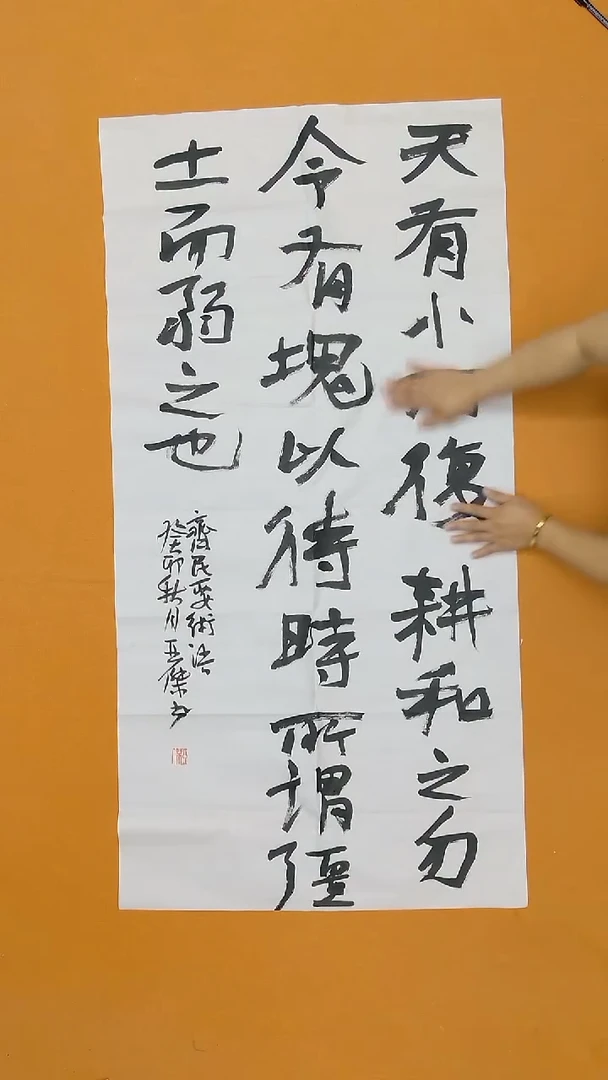 天有小復耕和之勿
今有塊以待時所謂彊
土而弱之也
齊民要術
癸卯秋月亞傑书